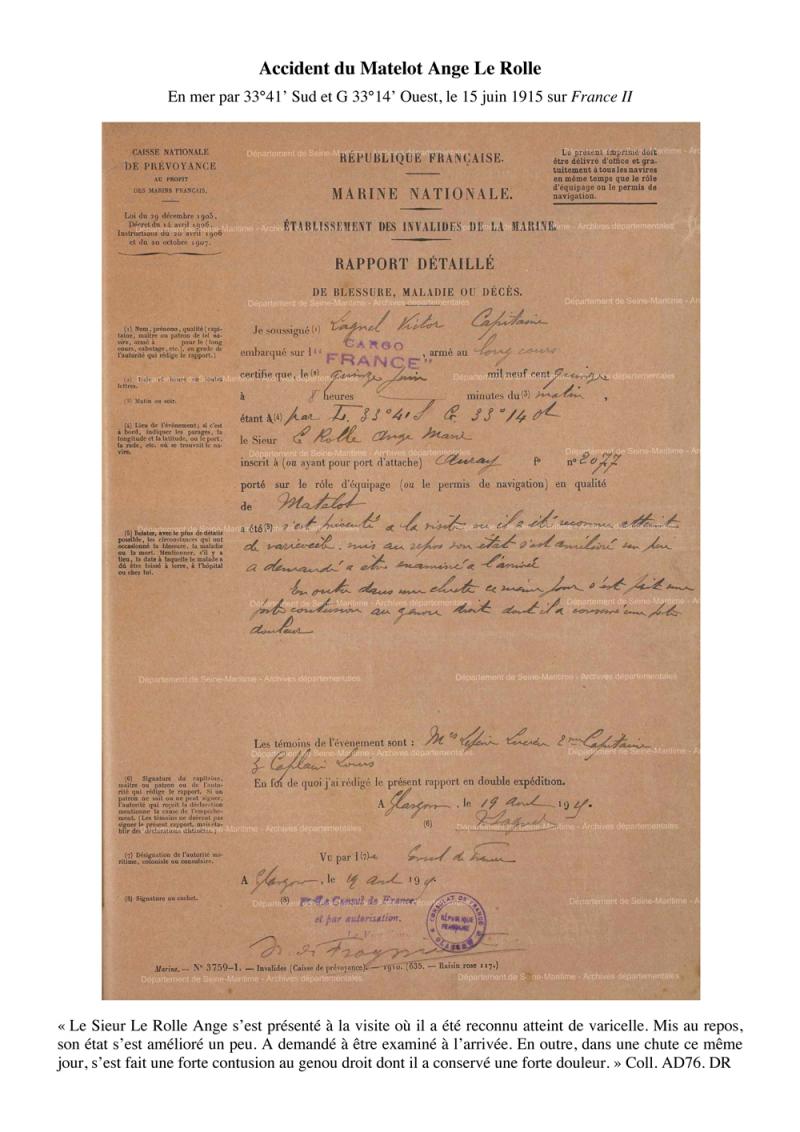 Accident du Matelot Ange Le Rolle
En mer par 33°41’ Sud et G 33°14’ Ouest, le 15 juin 1915 sur France II
CAISSE NATIONALE
DE PRÉVOYANCE
AU PROFIT
DES MARINS FRANÇAIS.
Loi du 29 décembre 1905,
Décret du 14 avril 1906,
Instructions du 20 avril 1906
et du 20 octobre 1907.
RÉPUBLIQUE FRANÇAISE.
MARINE NATIONALE.
ÉTABLISSEMENT DES INVALIDES DE LA MARINE.
RAPPORT DÉTAILLÉ
DE BLESSURE, MALADIE OU DÉCÈS.
Le présent imprimé doit
être délivré d'office et gra-
tuitement à tous les navires
en même temps que le rôle
d'équipage ou le permis de
navigation.
(1) Nom, prénoms, qualité (capi-
taine, maître ou patron de tel na-
vire, armé à pour le (long
cours, cabotage, etc.), ou grade de
l'autorité qui rédige le rapport.)
(2) Date et heure en toutes
lettres.
(3) Matin ou soir.
(4) Lieu de l'événement; si c'est
à bord, indiquer les parages, la
longitude et la latitude, ou le port,
la rade, etc. où se trouvait le na-
vire.
(5) Relater, avec le plus de détails
possible, les circonstances qui ont
occasionné la blessure, la maladie
ou la mort. Mentionner, s'il y a
lieu, la date à laquelle le malade a
dû être laissé à terre, à l'hôpital
ou chez lui.
Je soussigné (1) Lagnel Victor Capitaine
embarqué sur l "CARGO
FRANCE", armé au long cours
certifie que, le (2) quinze Juin mil neuf cent quinze
à 8 heures minutes du (3) matin,
étant à (4) par L. 33°41 S G. 33°14 Ot
le Sieur Le Rolle Ange Marie
inscrit à (ou ayant pour port d'attache) Auray f° n° 2077
porté sur le rôle d'équipage (ou le permis de navigation) en qualité
de Matelot
a été (5) s'est présenté a la visite ou il a été reconnu atteint
de varicocèle. mis au repos son état s'est amélioré un peu
a demandé a etre examiné a l'arrivée
En outre dans une chute ce même jour s'est fait une
forte contusion au genou droit dont il a conservé une forte
douleur
Les témoins de l'évenement sont : Mrs Lucien 2me Capitaine
& Caplain Louis
En foi de quoi j'ai rédigé le présent rapport en double expédition.
A Glasgow, le 19 191
(6) V Lagnel
(6) Signature du capitaine,
maître ou patron ou de l'auto-
rité qui rédige le rapport. Si un
patron ne sait ou ne peut signer,
l'autorité qui reçoit la déclaration
mentionne la cause de l'empêche-
ment. (Les témoins ne doivent pas
signer le présent rapport, mais éta-
blir des déclarations distinctes.)
(7) Désignation de l'autorité ma-
ritime, coloniale ou consulaire.
(8) Signature ou cachet.
Vu par l (7) Consul de France
A Glasgow, le 19 191
(8) Le Consul de France,
et par autorisation.
CONSULAT DE FRANCE
RÉPUBLIQUE
FRANÇAISE
GLASGOW
Marine. — N° 3759-1. — Invalides (Caisse de prévoyance). — 1910. (635. — Raisin rose 117.)
Département de Seine-Maritime - Archives départementales
« Le Sieur Le Rolle Ange s’est présenté à la visite où il a été reconnu atteint de varicelle. Mis au repos,
son état s’est amélioré un peu. A demandé à être examiné à l’arrivée. En outre, dans une chute ce même
jour, s’est fait une forte contusion au genou droit dont il a conservé une forte douleur. » Coll. AD76. DR